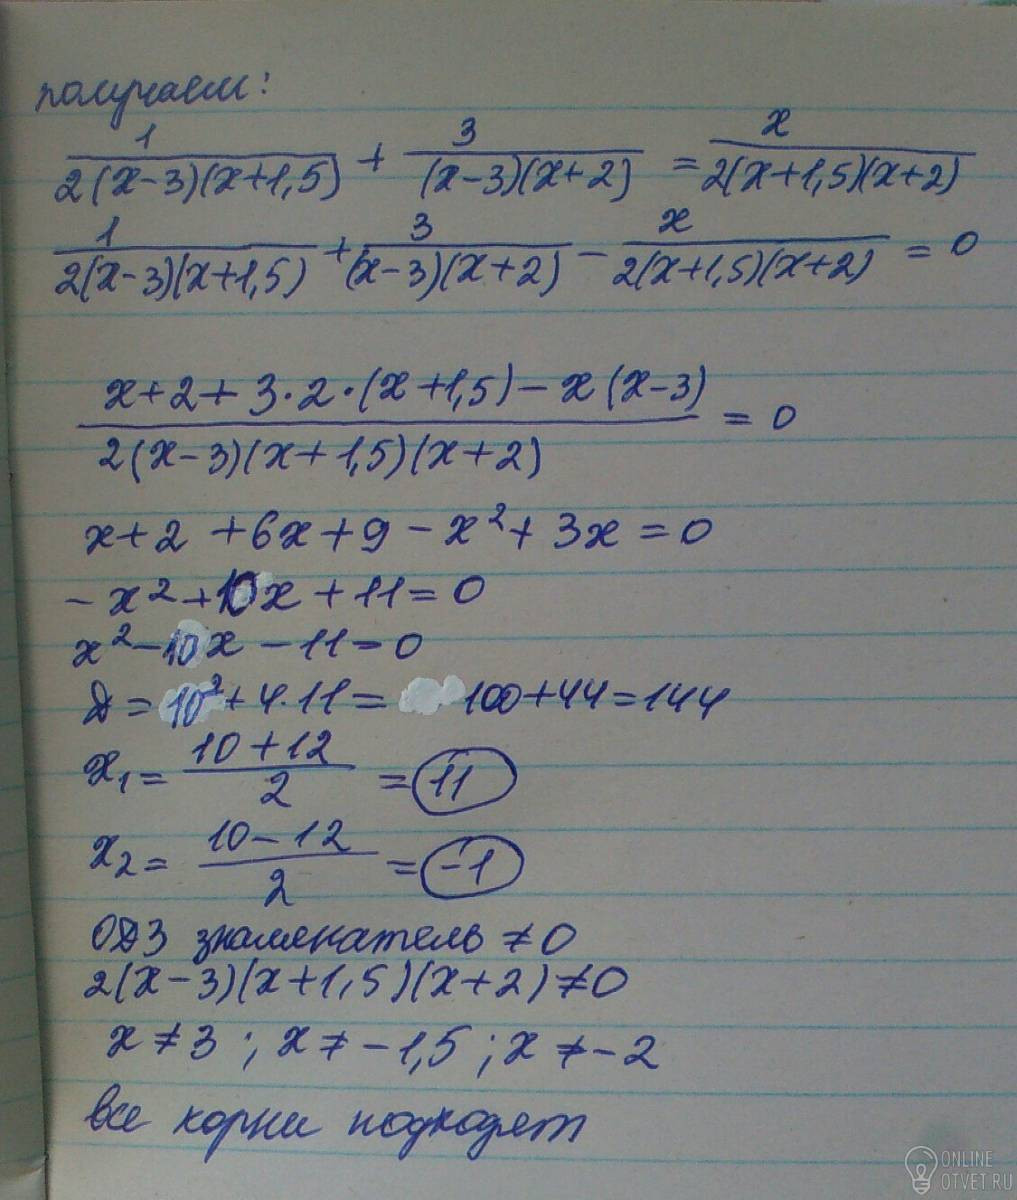 получаем:
1/(2(x-3)(x+1,5)) + 3/((x-3)(x+2)) = x/(2(x+1,5)(x+2))
1/(2(x-3)(x+1,5)) + 3/((x-3)(x+2)) - x/(2(x+1,5)(x+2)) = 0
(x+2+3·2·(x+1,5)-x(x-3))/(2(x-3)(x+1,5)(x+2)) = 0
x+2+6x+9-x²+3x=0
-x²+10x+11=0
x²-10x-11=0
D=10²+4·11=100+44=144
x₁=(10+12)/2=11
x₂=(10-12)/2=-1
ОДЗ знаменатель ≠0
2(x-3)(x+1,5)(x+2)≠0
x≠3; x≠-1,5; x≠-2
все корни подходят
ONLINE
OTVET.RU